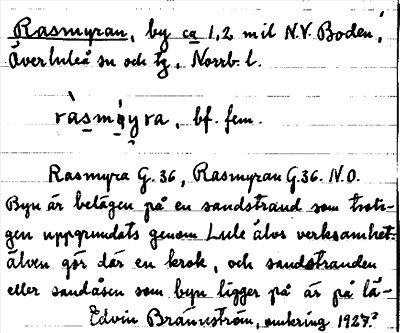 Rasmyran, by ca 1,2 mil N.V. Boden,
Överluleå sn och tg, Norrb. l.
ràsmýra, bf. fem.
Rasmyra G. 36, Rasmyran G. 36. N.O.
Byn är belägen på en sandstrand som troli-
gen uppgrundats genom Lule älvs verksamhet:
älven gör där en krok, och sandstranden
eller sandåsen som byn ligger på är på lä-
Edvin Brännström, omkring 1927?